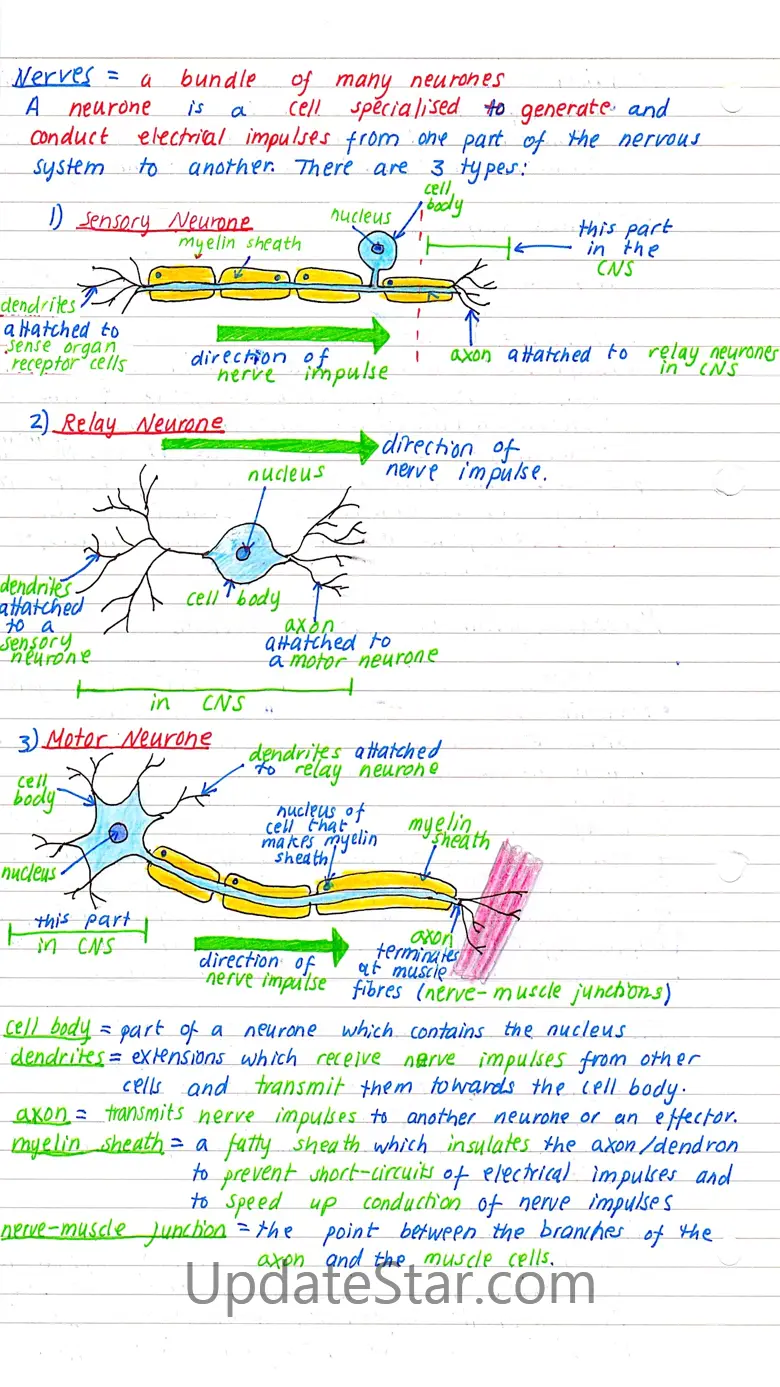 Nerves = a bundle of many neurones
A neurone is a cell specialised to generate and
conduct electrical impulses from one part of the nervous
system to another. There are 3 types:
1) Sensory Neurone
nucleus
cell
body
this part
in the
CNS
myelin sheath
dendrites
attatched to
sense organ
receptor cells
direction of
nerve impulse
axon attatched to relay neurones
in CNS
2) Relay Neurone
direction of
nerve impulse.
nucleus
dendrites
attatched
to a
sensory
neurone
cell body
axon
attatched to
a motor neurone
in CNS
3) Motor Neurone
dendrites attatched
to relay neurone
cell
body
nucleus of
cell that
makes myelin
sheath
myelin
sheath
nucleus
this part
in CNS
direction of
nerve impulse
axon
terminates
at muscle
fibres (nerve-muscle junctions)
cell body = part of a neurone which contains the nucleus
dendrites = extensions which receive nerve impulses from other
cells and transmit them towards the cell body.
axon = transmits nerve impulses to another neurone or an effector.
myelin sheath = a fatty sheath which insulates the axon/dendron
to prevent short-circuits of electrical impulses and
to speed up conduction of nerve impulses
nerve-muscle junction = the point between the branches of the
axon and the muscle cells.
UpdateStar.com